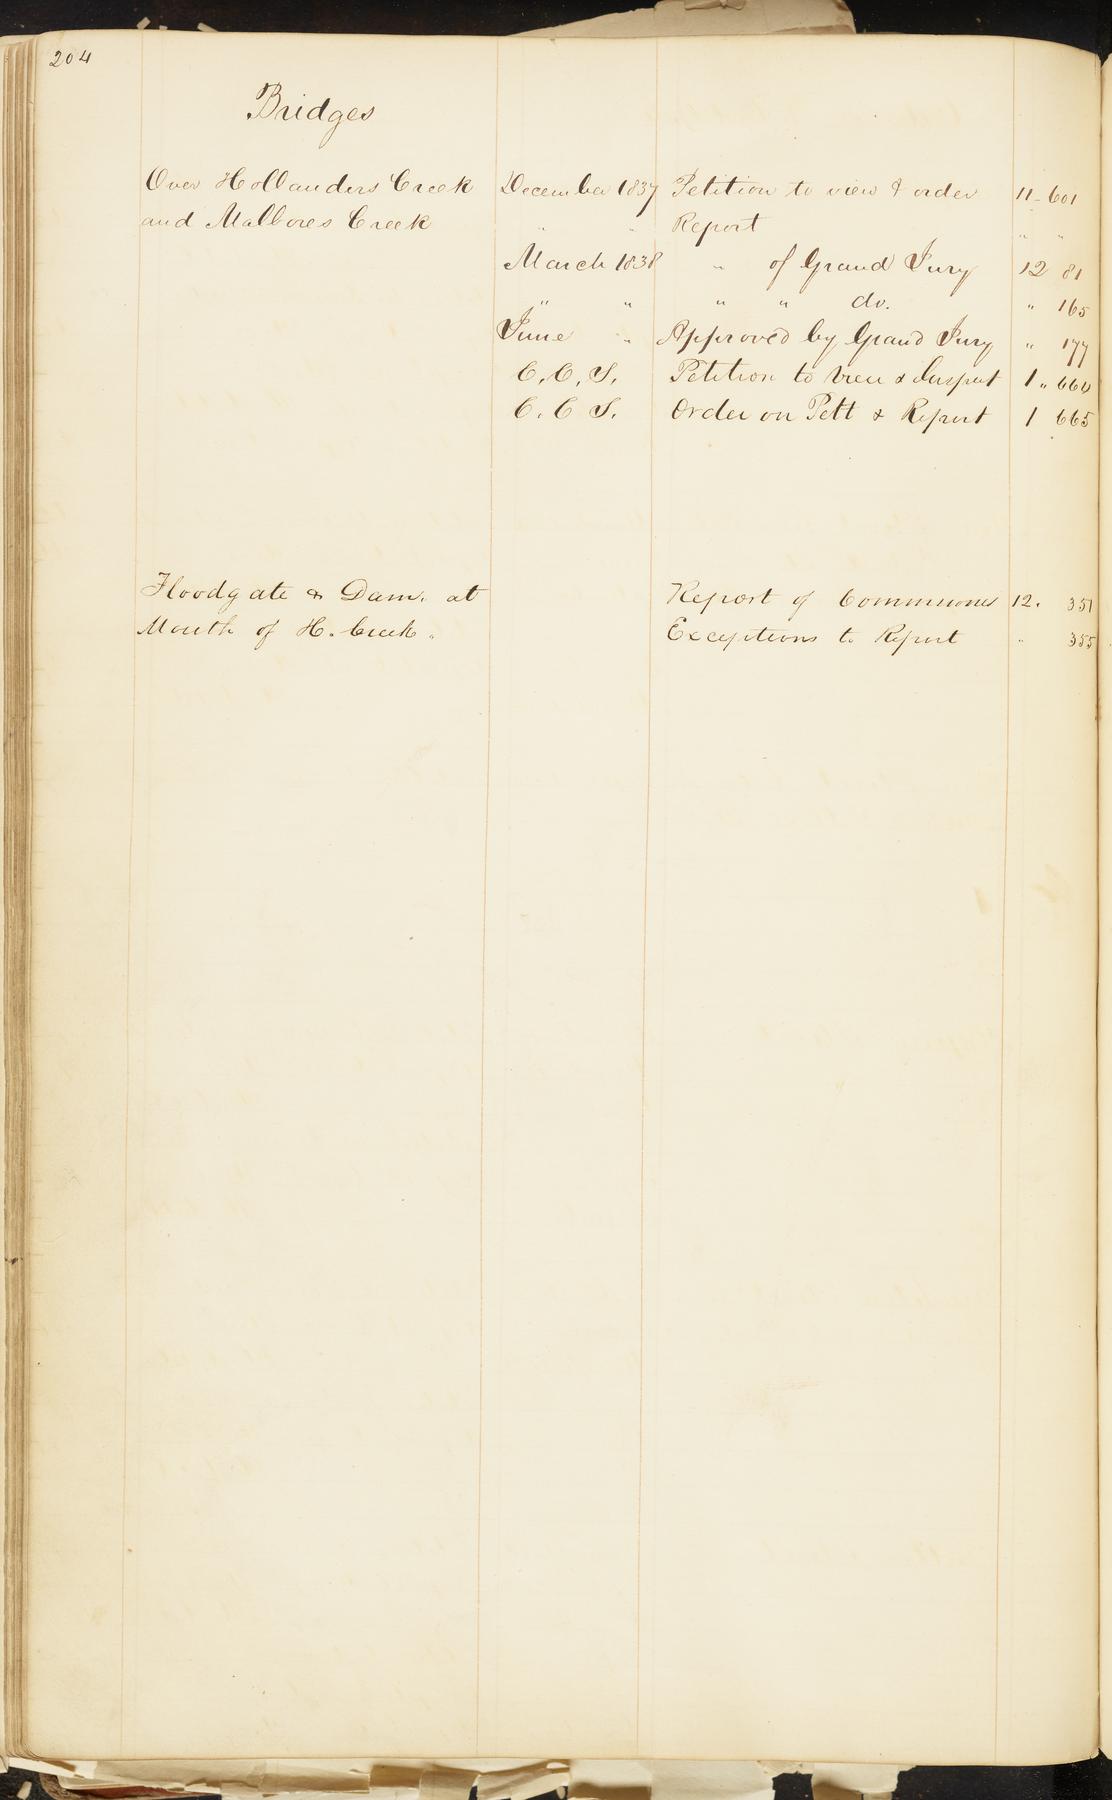 204
Bridges
Over Hollanders Creek December 1837 Petition to view & order 11 - 601
and Malbores Creek " " Report " "
March 1838 " of Grand Jury 12 81
" " " " do. " 165
June " Approved by Grand Jury " 177
C. C. S. Petition to View & Inspect 1 " 660
C. C S. Order on Pett & Report 1 665
Floodgate & Dam. at Report of Commissioners 12. 351
Mouth of H. Creek. Exceptions to Report " 355